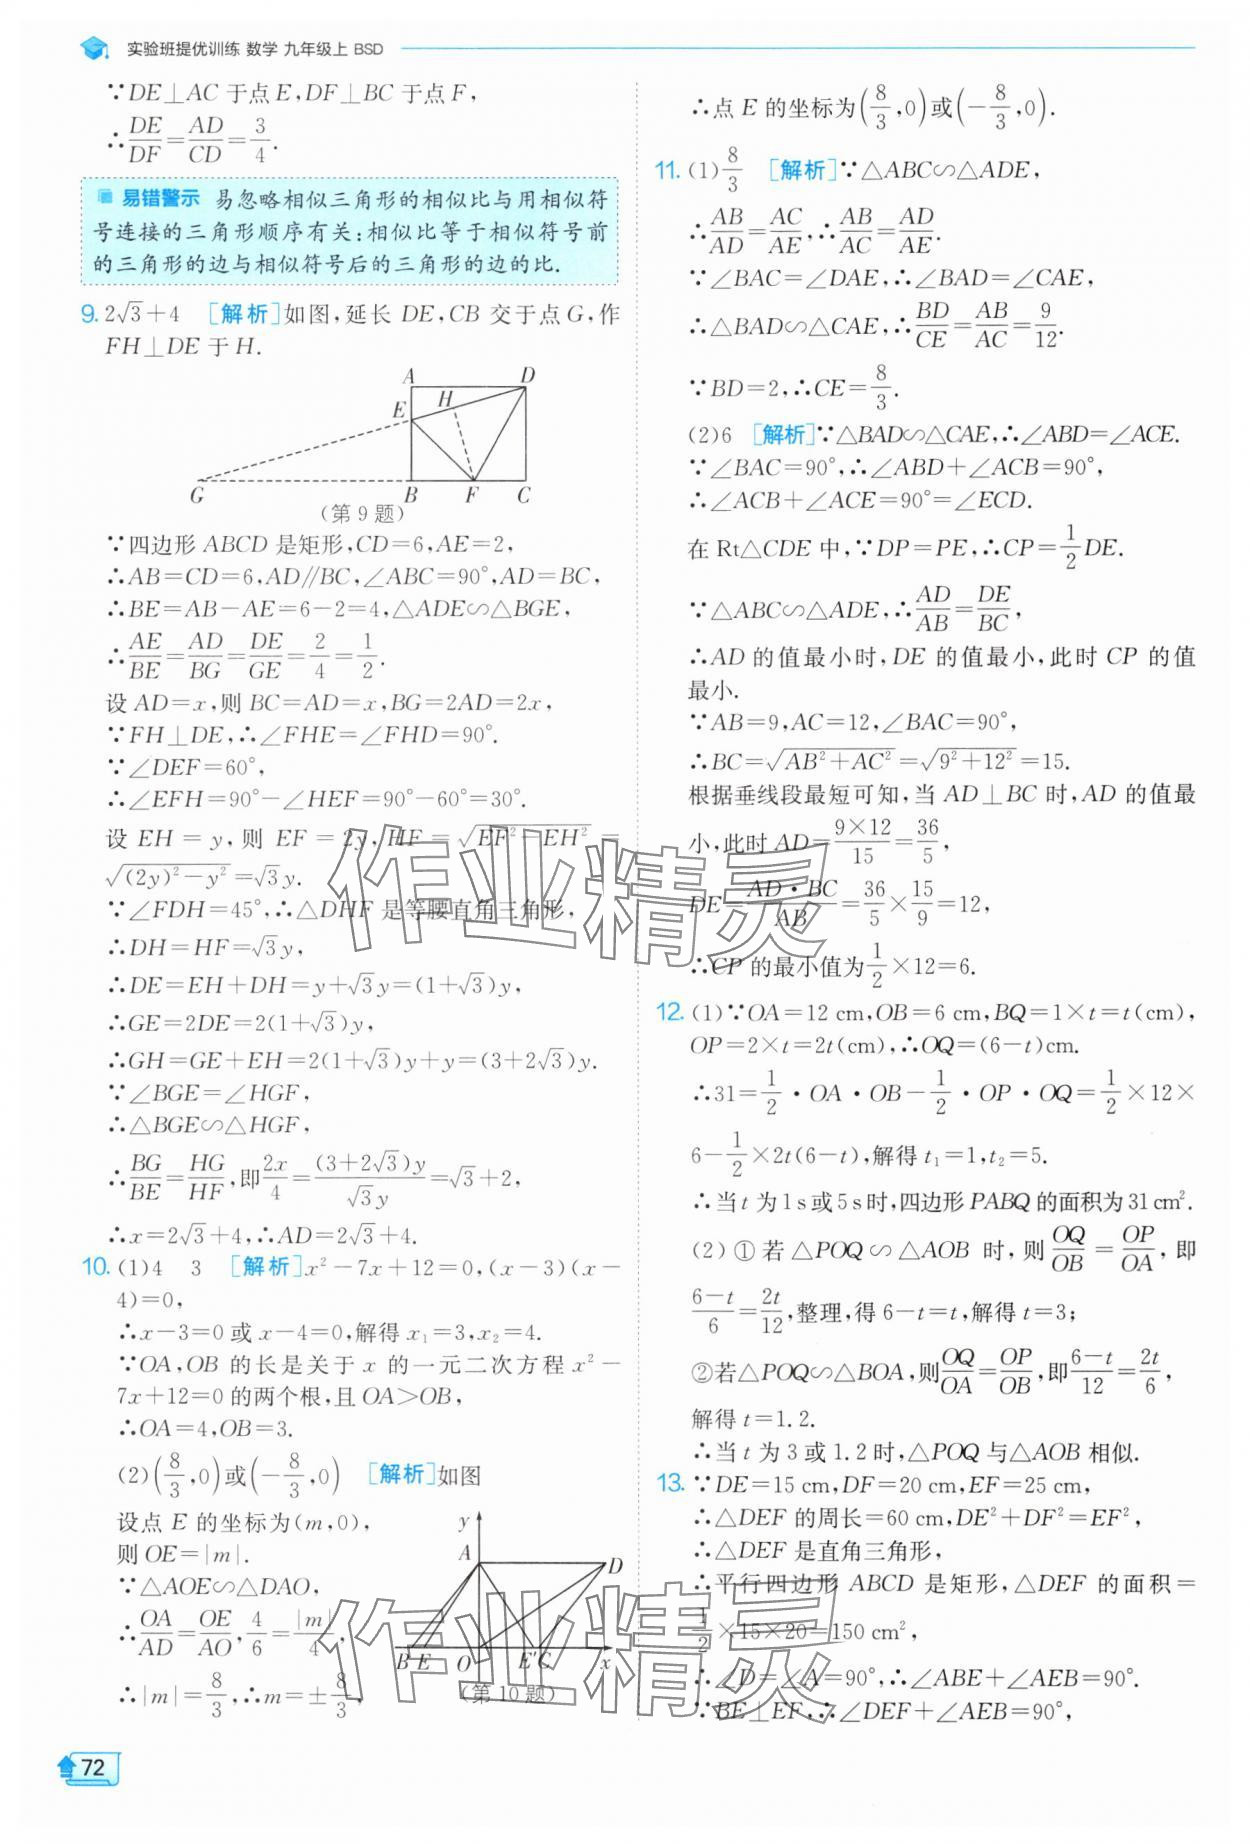 实验班提优训练 数学 九年级上 BSD
∵DE⊥AC 于点 E,DF⊥BC 于点 F,
∴DE/DF=AD/CD=3/4.
易错警示 易忽略相似三角形的相似比与用相似符
号连接的三角形顺序有关:相似比等于相似符号前
的三角形的边与相似符号后的三角形的边的比.
9. 2√3+4 [解析]如图,延长 DE,CB 交于点G,作
FH⊥DE 于 H.
A D
H
E
G B F C
(第 9 题)
∵四边形 ABCD 是矩形,CD=6,AE=2,
∴AB=CD=6,AD∥BC,∠ABC=90°,AD=BC,
∴BE=AB-AE=6-2=4,△ADE∽△BGE,
∴AE/BE=AD/BG=DE/GE=2/4=1/2.
设 AD=x,则 BC=AD=x,BG=2AD=2x,
∵FH⊥DE,∴∠FHE=∠FHD=90°.
∵∠DEF=60°,
∴∠EFH=90°-∠HEF=90°-60°=30°.
设 EH = y, 则 EF = 2y, HF = √(EF²-EH²) =
√((2y)²-y²)=√3y.
∵∠FDH=45°,∴△DHF 是等腰直角三角形,
∴DH=HF=√3y,
∴DE=EH+DH=y+√3y=(1+√3)y,
∴GE=2DE=2(1+√3)y,
∴GH=GE+EH=2(1+√3)y+y=(3+2√3)y.
∵∠BGE=∠HGF,
∴△BGE∽△HGF,
∴BG/BE=HG/HF,即2x/4=(3+2√3)y/√3y=√3+2,
∴x=2√3+4,∴AD=2√3+4.
10. (1)4 3 [解析]x²-7x+12=0,(x-3)(x-
4)=0,
∴x-3=0 或 x-4=0,解得 x₁=3,x₂=4.
∵OA,OB 的长是关于 x 的一元二次方程 x²-
7x+12=0 的两个根,且 OA>OB,
∴OA=4,OB=3.
(2)(8/3,0)或(-8/3,0) [解析]如图
设点 E 的坐标为(m,0),
则 OE=|m|.
∵△AOE∽△DAO,
∴OA/AD=OE/AO,4/6=|m|/4,
∴|m|=8/3,∴m=±8/3,
y
A D
B E O E′ C x
(第 10 题)
∴点 E 的坐标为(8/3,0)或(-8/3,0).
11. (1)8/3 [解析]∵△ABC∽△ADE,
∴AB/AD=AC/AE,∴AB/AC=AD/AE.
∵∠BAC=∠DAE,∴∠BAD=∠CAE,
∴△BAD∽△CAE,∴BD/CE=AB/AC=9/12.
∵BD=2,∴CE=8/3.
(2)6 [解析]∵△BAD∽△CAE,∴∠ABD=∠ACE.
∵∠BAC=90°,∴∠ABD+∠ACB=90°,
∴∠ACB+∠ACE=90°=∠ECD.
在 Rt△CDE 中,∵DP=PE,∴CP=1/2DE.
∵△ABC∽△ADE,∴AD/AB=DE/BC,
∴AD 的值最小时,DE 的值最小,此时 CP 的值
最小.
∵AB=9,AC=12,∠BAC=90°,
∴BC=√(AB²+AC²)=√(9²+12²)=15.
根据垂线段最短可知,当 AD⊥BC 时,AD 的值最
小,此时 AD=9×12/15=36/5,
DE=AD·BC/AB=36/5×15/9=12,
∴CP 的最小值为1/2×12=6.
12. (1)∵OA=12 cm,OB=6 cm,BQ=1×t=t(cm),
OP=2×t=2t(cm),∴OQ=(6-t)cm.
∴31=1/2·OA·OB-1/2·OP·OQ=1/2×12×
6-1/2×2t(6-t),解得 t₁=1,t₂=5.
∴当 t 为 1 s 或 5 s 时,四边形 PABQ 的面积为 31 cm².
(2) ①若 △POQ ∽ △AOB 时, 则 OQ/OB = OP/OA, 即
6-t/6=2t/12,整理,得 6-t=t,解得 t=3;
②若△POQ∽△BOA,则OQ/OA=OP/OB,即6-t/12=2t/6,
解得 t=1.2.
∴当 t 为 3 或 1.2 时,△POQ 与△AOB 相似.
13. ∵DE=15 cm,DF=20 cm,EF=25 cm,
∴△DEF 的周长=60 cm,DE²+DF²=EF²,
∴△DEF 是直角三角形,
∴平行四边形 ABCD 是矩形,△DEF 的面积=
1/2×15×20=150 cm²,
∴∠D=∠A=90°,∴∠ABE+∠AEB=90°.
∵BE⊥EF,∴∠DEF+∠AEB=90°,
作业精灵
作业精灵
72